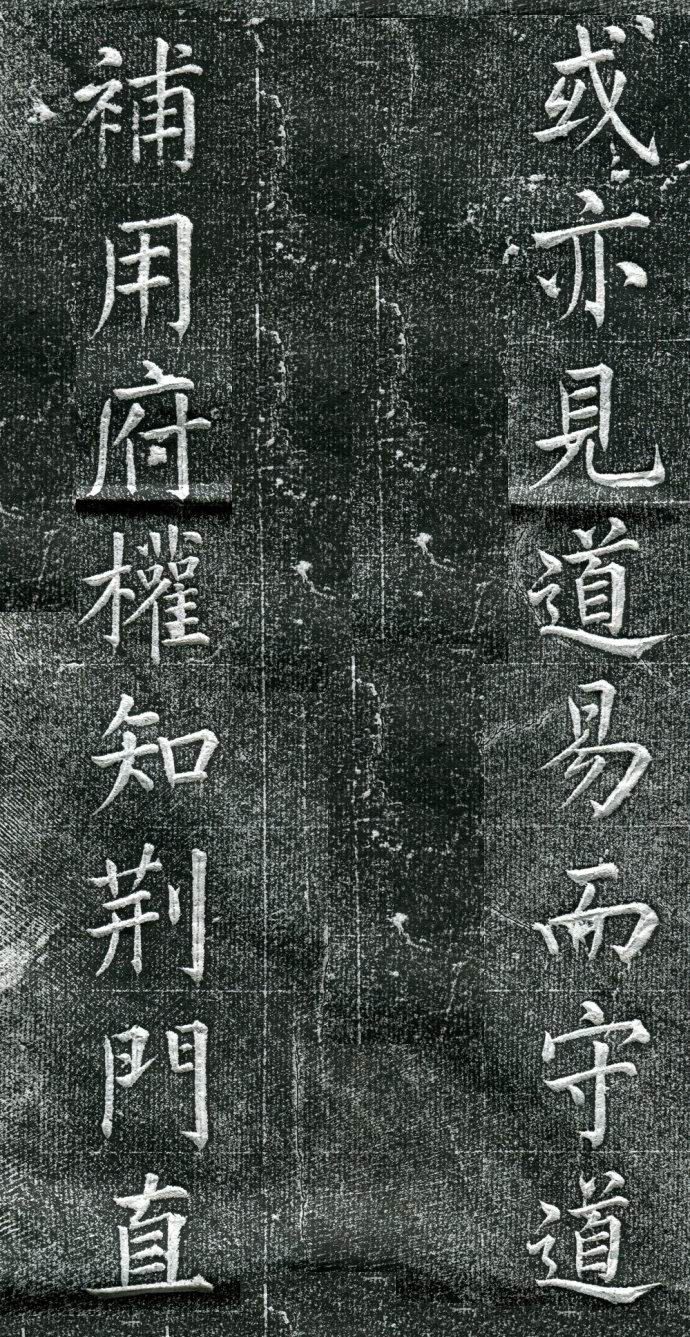 或亦見道易而守道
補用府權知荆門直